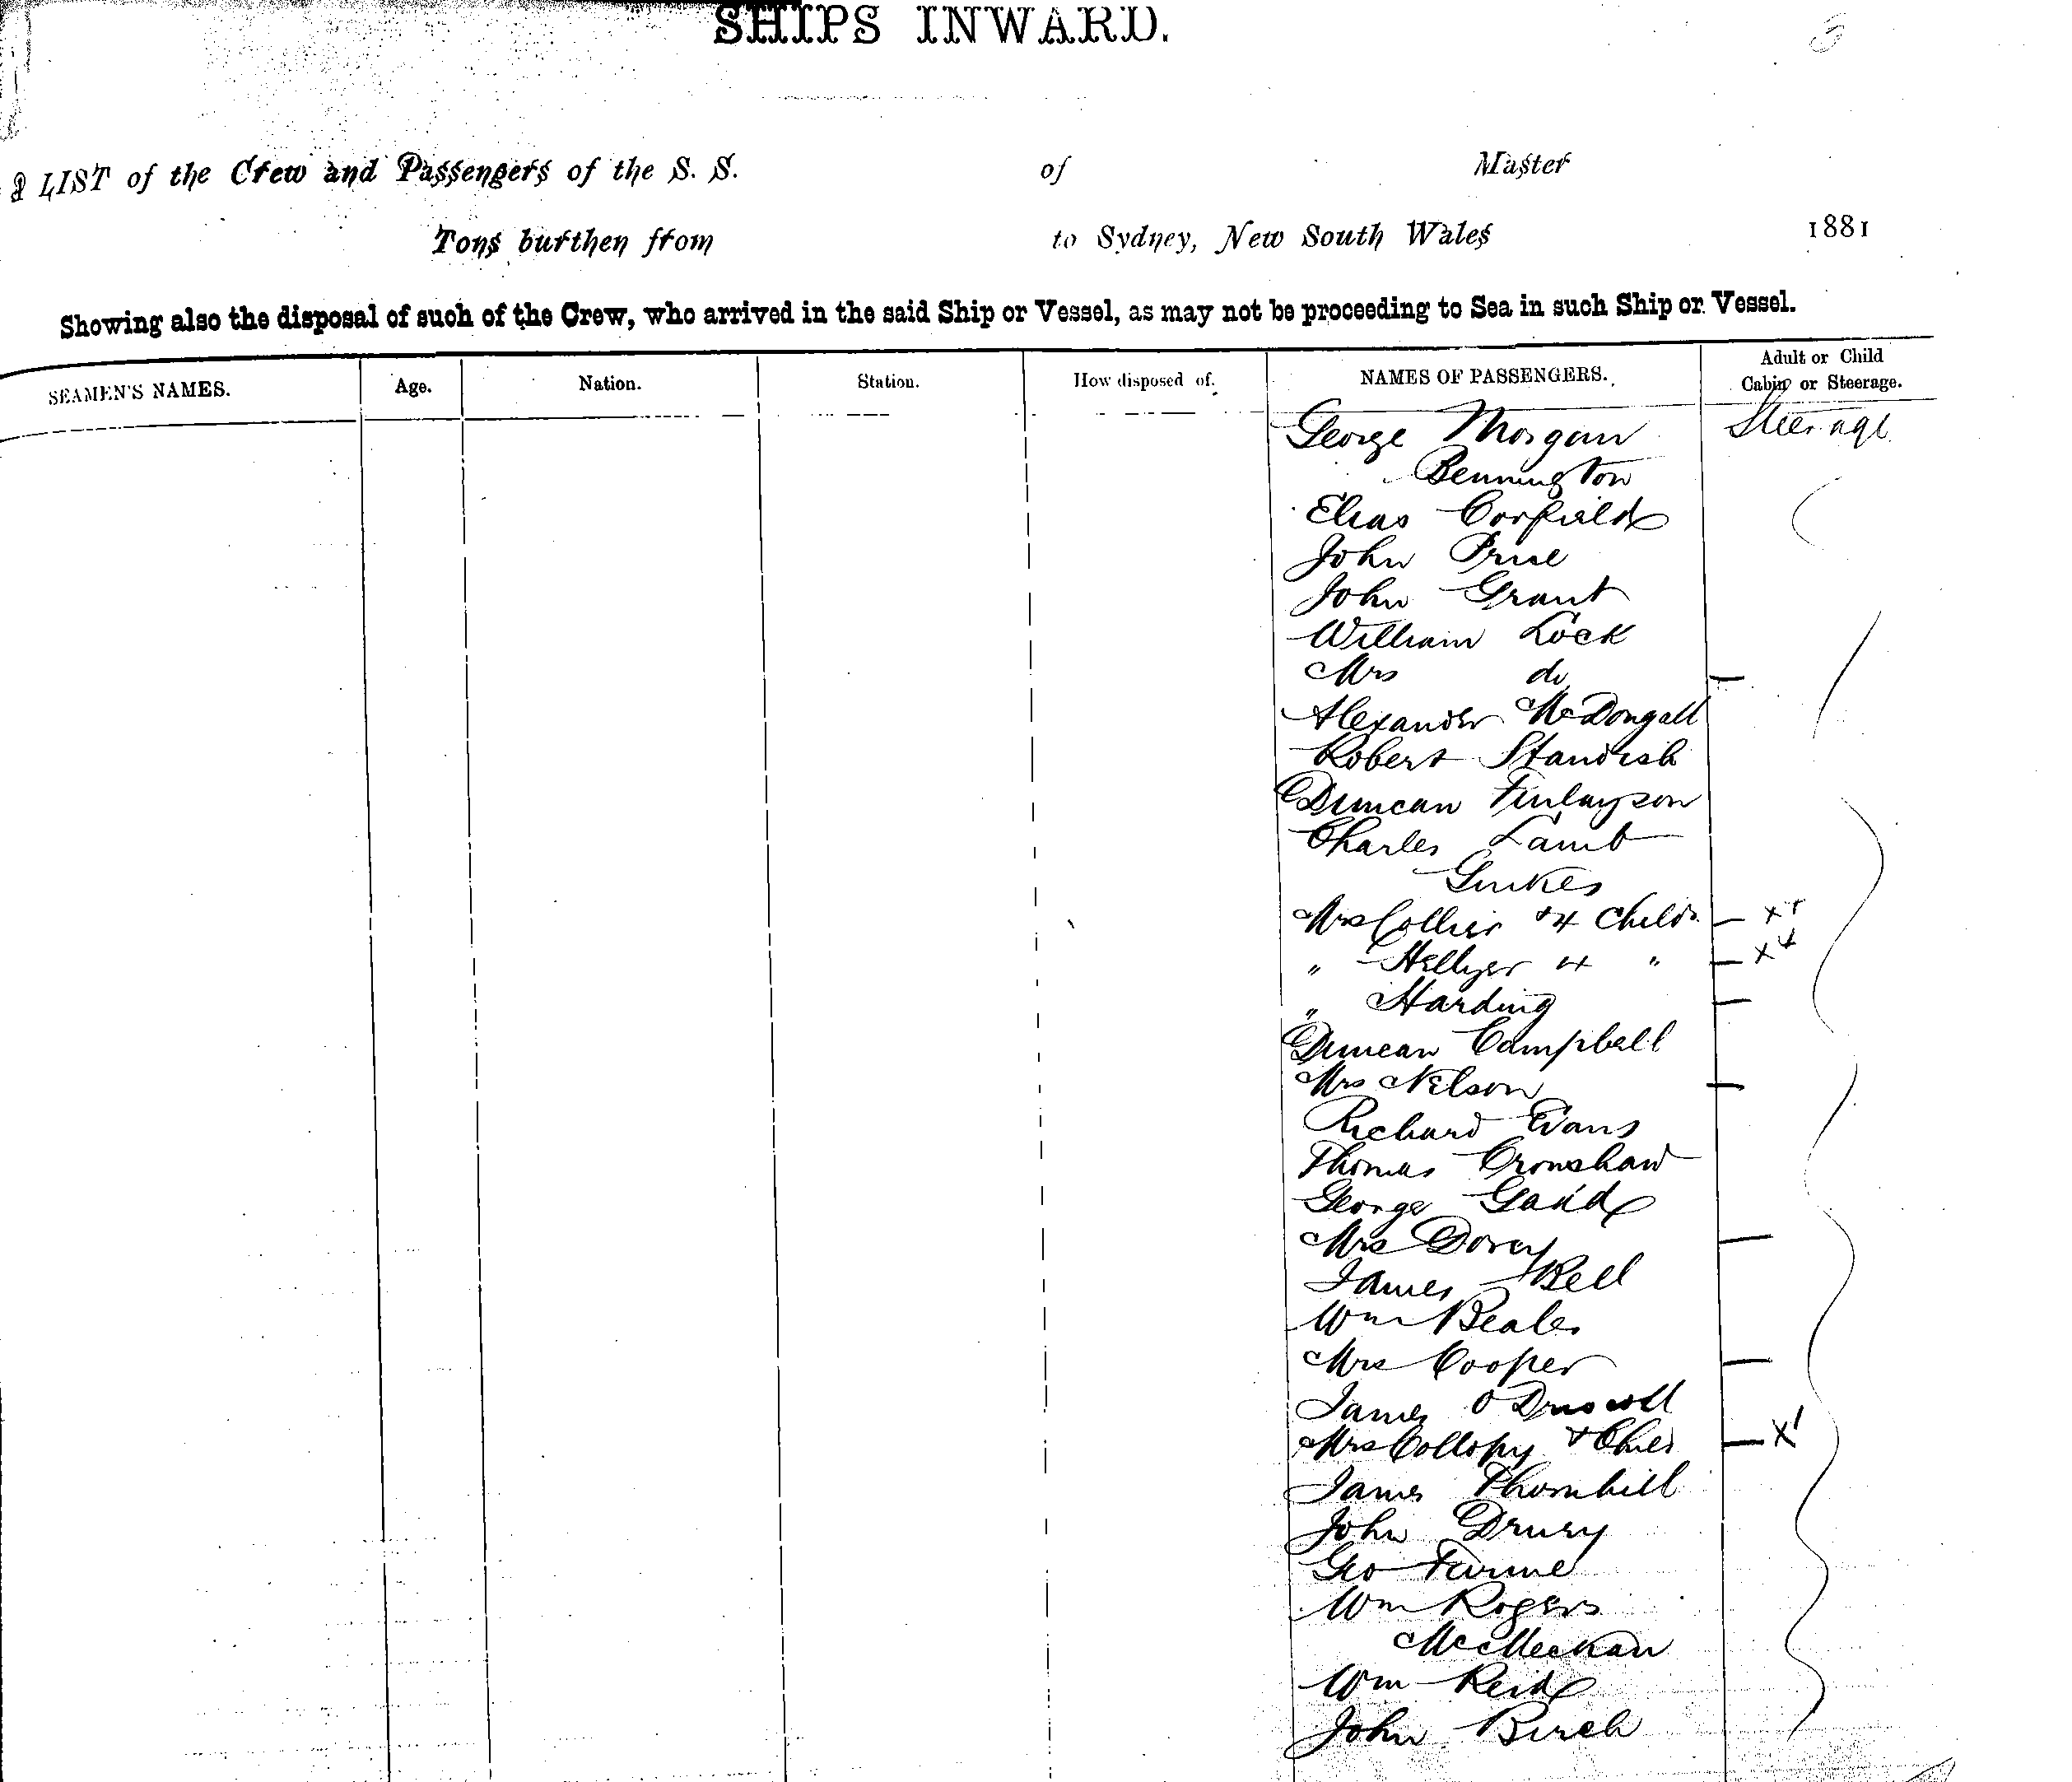 SHIPS INWARD.
A LIST of the Crew and Passengers of the S. S. of Master
Tons burthen from to Sydney, New South Wales 1881
Showing also the disposal of such of the Crew, who arrived in the said Ship or Vessel, as may not be proceeding to Sea in such Ship or Vessel.
SEAMEN'S NAMES. Age. Nation. Station. How disposed of. NAMES OF PASSENGERS. Adult or Child
Cabin or Steerage.
George Morgan Steerage
Bennington
Elias Corfield
John Price
John Grant
William Lock
Mrs do
Alexander McDongall
Robert Standish
Duncan Finlayson
Charles Lamb
Mrs Collier + 4 Childn
" Hellyer 4 "
" Harding
Duncan Campbell
Mrs Nelson
Richard Evans
Thomas Cronshaw
George
Mrs Dorey
James Bell
Wm Beales
Mrs Cooper
James O Driscoll
Mrs Collopy +
James Thornhill
John Drury
Geo
Wm Rogers
McMeekan
Wm Reid
John Birch